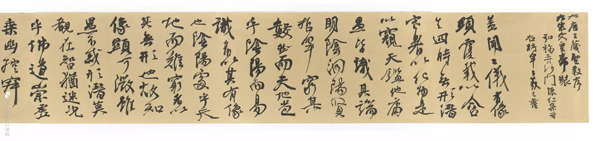 大唐三藏聖教序
太宗文皇帝製
弘福寺沙門懷仁集晉
右將軍王羲之書
蓋聞二儀有像
顯覆載以含
生四時無形潛
寒暑以化物是
以窺天鑑地庸
愚皆識其端
明陰洞陽賢
哲罕窮其
數然而天地苞
乎陰陽而易
識者以其有像
也陰陽處乎天
地而難窮者以
其無形也故知
像顯可徵雖
愚不惑形潛莫
覩在智猶迷況
乎佛道崇虛
乘幽控寂